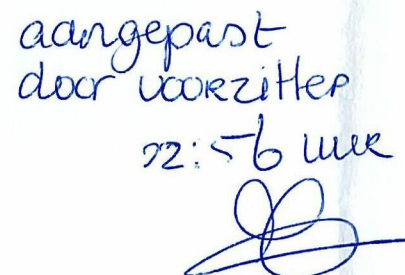 aangepast
door voorzitter
22:56 uur